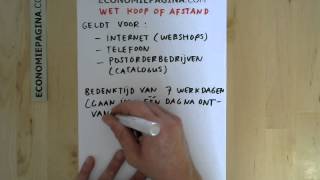 ECONOMIEPAGINA.COM
WET KOOP OP AFSTAND
GELDT VOOR:
– INTERNET (WEBSHOPS)
– TELEFOON
– POSTORDERBEDRIJVEN
(CATALOGUS)
BEDENKTIJD VAN 7 WERKDAGEN
(GAAN ÉÉN DAG NA ONT-
VAN
ECONOMIEPAGINA.COM